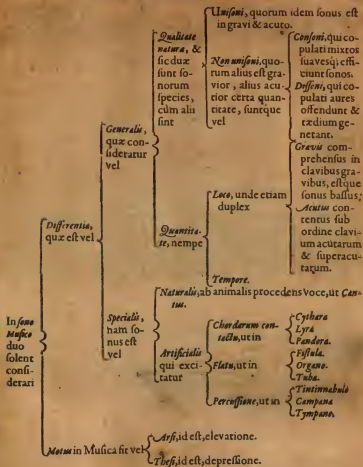 In sono
Musico
duo
solent
consi-
derari
Differentia,
quæ est vel
Generalis,
quæ con-
sideratur
vel
Qualitate
natura, &
sic duæ
sunt so-
norum
species,
cùm alii
sint
Unisoni, quorum idem sonus est
in gravi & acuto.
Non unisoni, quo-
rum alius est gra-
vior, alius acu-
tior certa quan-
titate, suntque
vel
Consoni, qui co-
pulati mixtos
suavesq; effi-
ciunt sonos.
Dissoni, qui co-
pulati aures
offendunt &
tædium ge-
nerant.
Quantita-
te, nempe
Loco, unde etiam
duplex
Gravis com-
prehensus in
clavibus gra-
vibus, estque
sonus bassus;
Acutus con-
tentus sub
ordine clavi-
um acutarum
& superacu-
tarum.
Tempore.
Specialis,
nam so-
nus est
vel
Naturalis, ab animalis procedens voce, ut Can-
tus.
Artificialis
qui exci-
tatur
Chordarum con-
tactu, ut in
Cythara
Lyra
Pandora.
Flatu, ut in
Fistula.
Organo.
Tuba.
Percussione, ut in
Tintinnabulo
Campana
Tympano.
Motus in Musica fit vel
Arsi, id est, elevatione.
Thesi, id est, depressione.